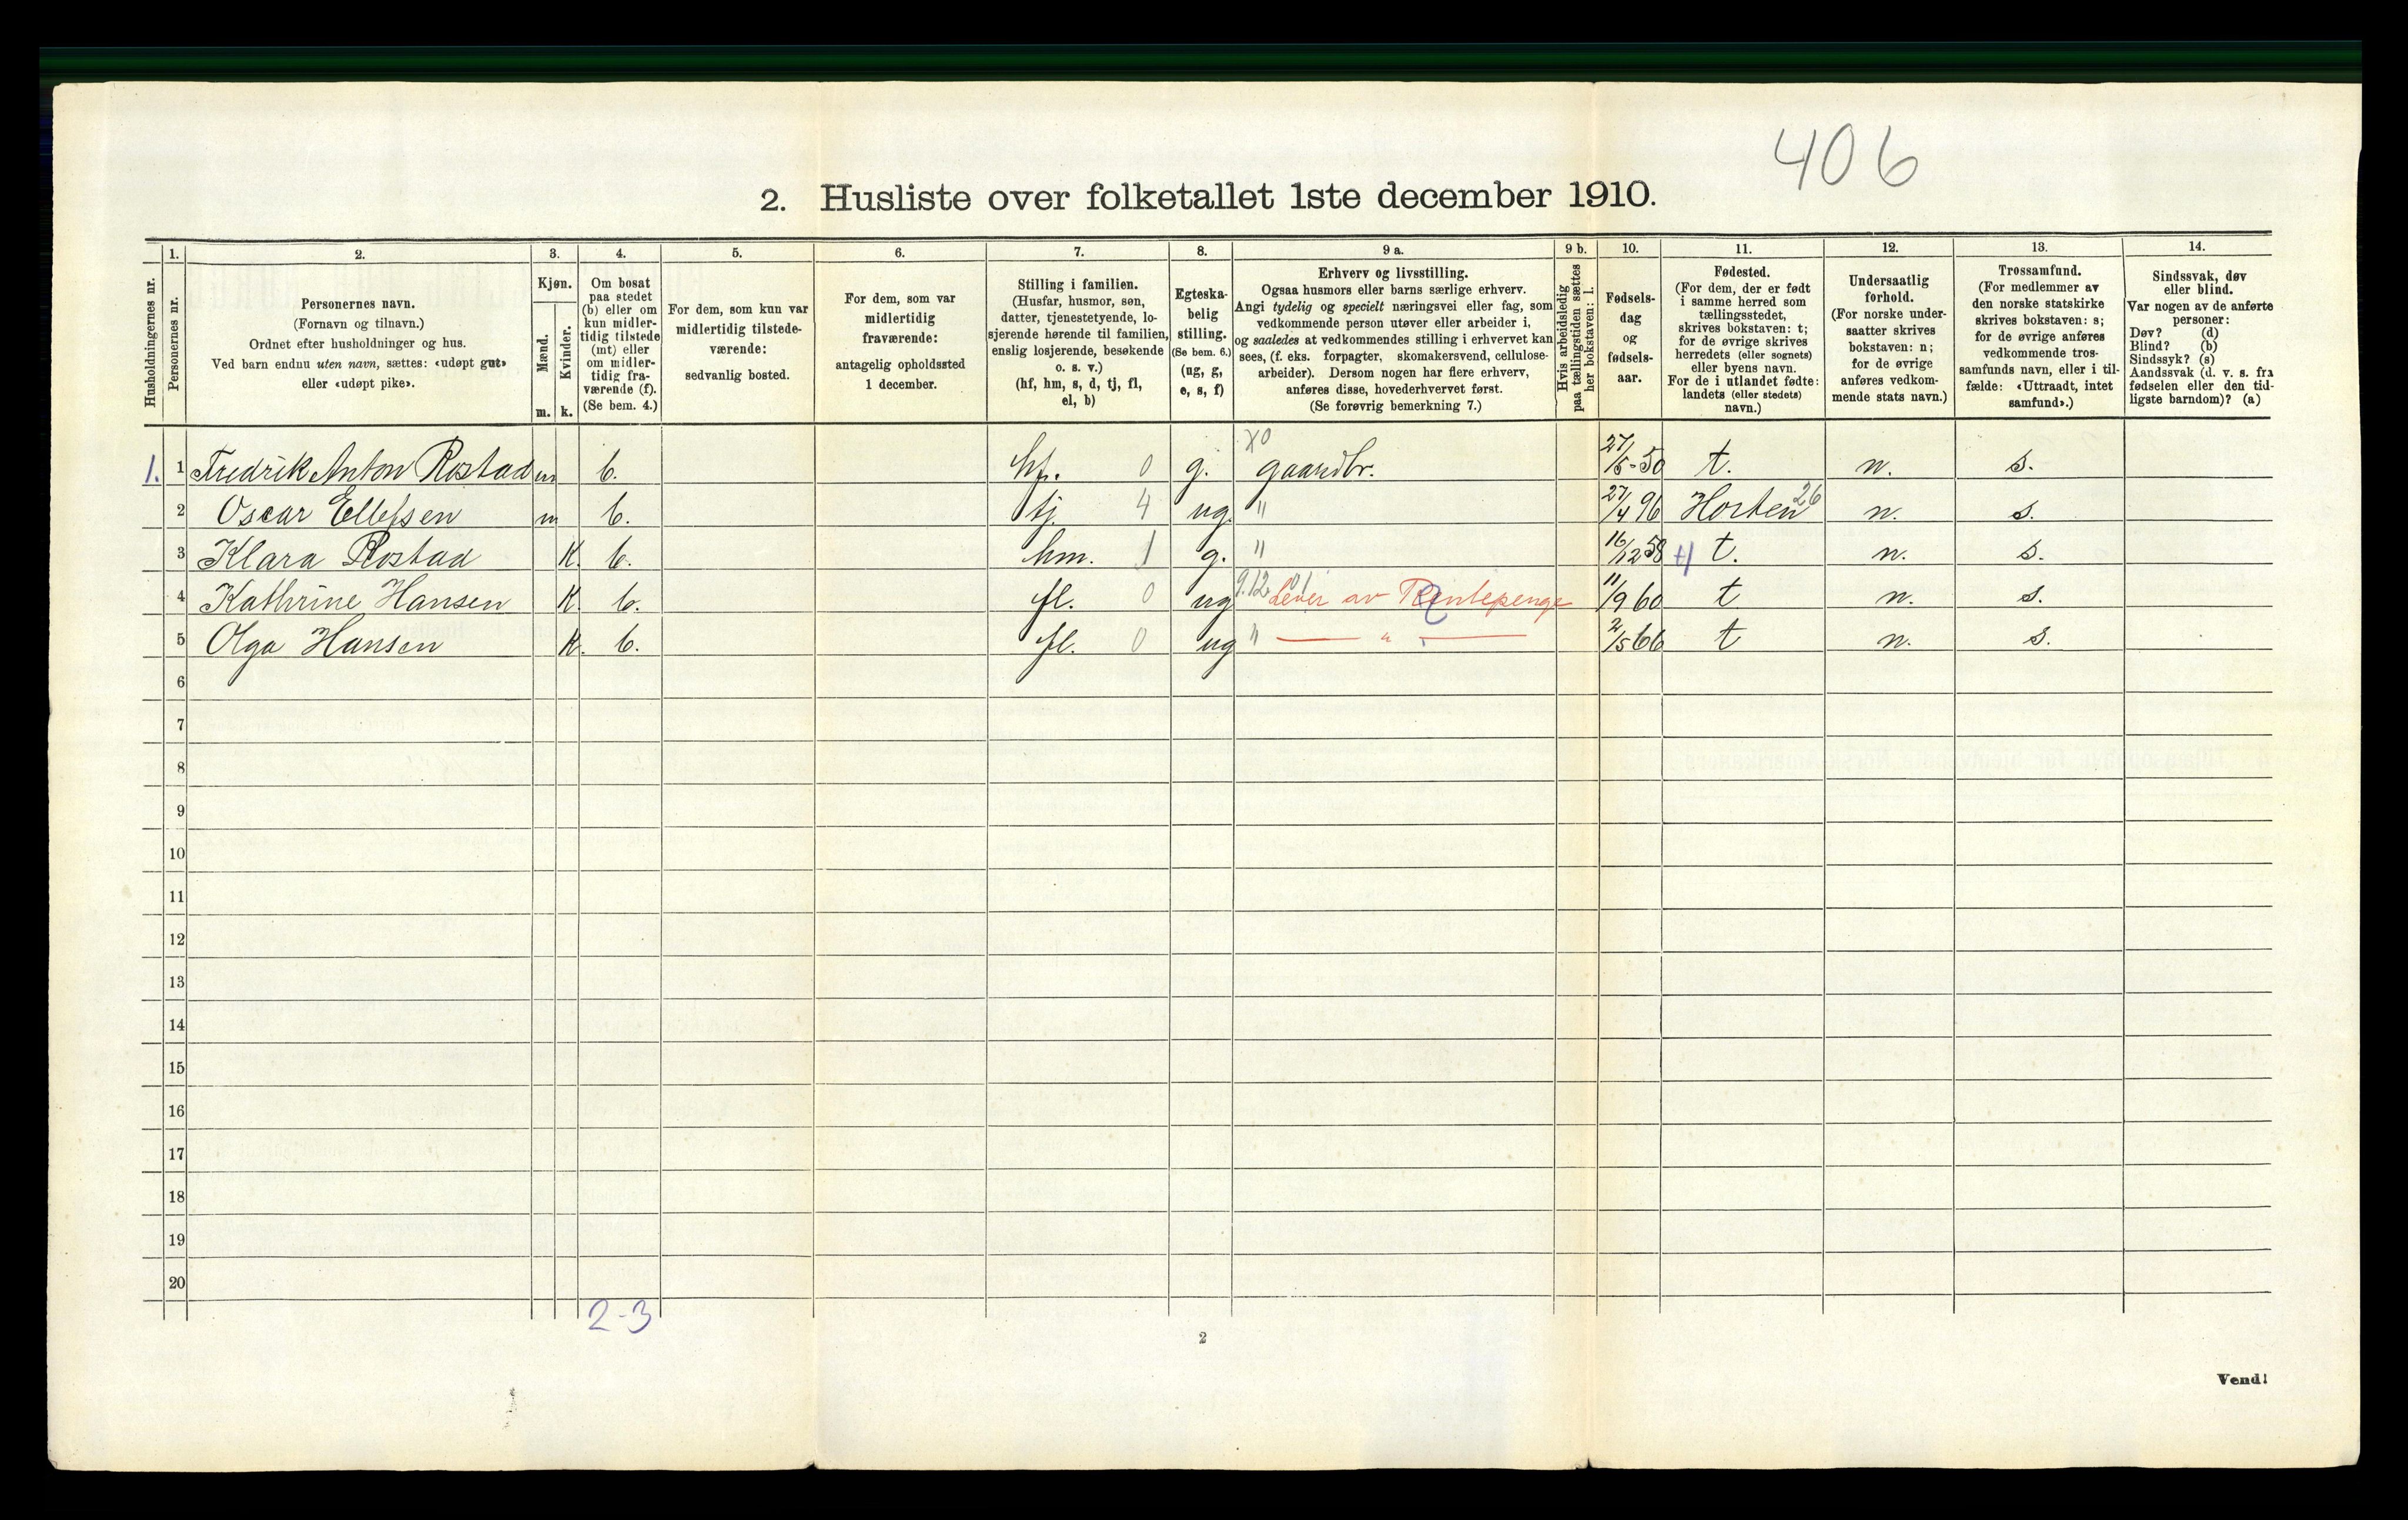 406
2. Husliste over folketallet 1ste december 1910.
Husholdningernes nr.
1. Personernes nr.
2. Personernes navn. (Fornavn og tilnavn.) Ordnet efter husholdninger og hus. Ved barn endnu uten navn, sættes: «udøpt gut» eller «udøpt pike».
3. Kjøn. Mænd. m. Kvinder. k.
4. Om bosat paa stedet (b) eller om kun midlertidig tilstede (mt) eller om midlertidig fraværende (f). (Se bem. 4.)
5. For dem, som kun var midlertidig tilstedeværende: sedvanlig bosted.
6. For dem, som var midlertidig fraværende: antagelig opholdssted 1 december.
7. Stilling i familien. (Husfar, husmor, søn, datter, tjenestetyende, losjerende hørende til familien, enslig losjerende, besøkende o. s. v.) (hf, hm, s, d, tj, fl, el, b)
8. Egteskabelig stilling. (Se bem. 6.) (ug, g, e, s, f)
9 a. Erhverv og livsstilling. Ogsaa husmors eller barns særlige erhverv. Angi tydelig og specielt næringsvei eller fag, som vedkommende person utøver eller arbeider i, og saaledes at vedkommendes stilling i erhvervet kan sees, (f. eks. forpagter, skomakersvend, cellulosearbeider). Dersom nogen har flere erhverv, anføres disse, hovederhvervet først. (Se forøvrig bemerkning 7.)
9 b. Hvis arbeidsledig paa tællingstiden sættes her bokstaven: l.
10. Fødselsdag og fødselsaar.
11. Fødested. (For dem, der er født i samme herred som tællingsstedet, skrives bokstaven: t; for de øvrige skrives herredets (eller sognets) eller byens navn. For de i utlandet fødte: landets (eller stedets) navn.)
12. Undersaatlig forhold. (For norske undersaatter skrives bokstaven: n; for de øvrige anføres vedkommende stats navn.)
13. Trossamfund. (For medlemmer av den norske statskirke skrives bokstaven: s; for de øvrige anføres vedkommende trossamfunds navn, eller i tilfælde: «Uttraadt, intet samfund».)
14. Sindssvak, døv eller blind. Var nogen av de anførte personer: Døv? (d) Blind? (b) Sindssyk? (s) Aandssvak (d. v. s. fra fødselen eller den tidligste barndom)? (a)
1. 1 Fredrik Anton Rostad m b. hf. 0 g. X0 gaardbr. 27/5-50 t. n. s.
2 Oscar Ellefsen m b. tj. 4 ug. " 27/4 96 Horten 26 n. s.
3 Klara Rostad K. b. hm. 1 g. " 16/12 58 t. n. s.
4 Kathrine Hansen K. b. fl. 0 ug 9.12 Lever av Rentepenge 11/9 60 t n. s.
5 Olga Hansen K. b. fl. 0 ug " — " — 2/5 66 t n. s.
6
7
8
9
10
11
12
13
14
15
16
17
18
19
20
2-3
2
Vend!